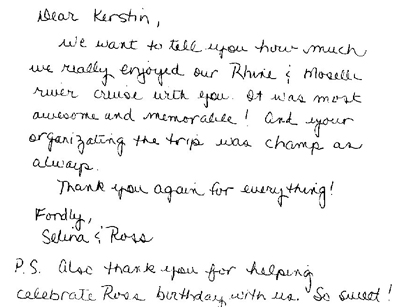 Dear Kerstin,
We want to tell you how much
we really enjoyed our Rhine & Moselle
river cruise with you. It was most
awesome and memorable! And your
organizating the trip was champ as
always.
Thank you again for everything!
Fondly,
Selina & Ross
P.S. Also thank you for helping
celebrate Ross birthday with us. So sweet!